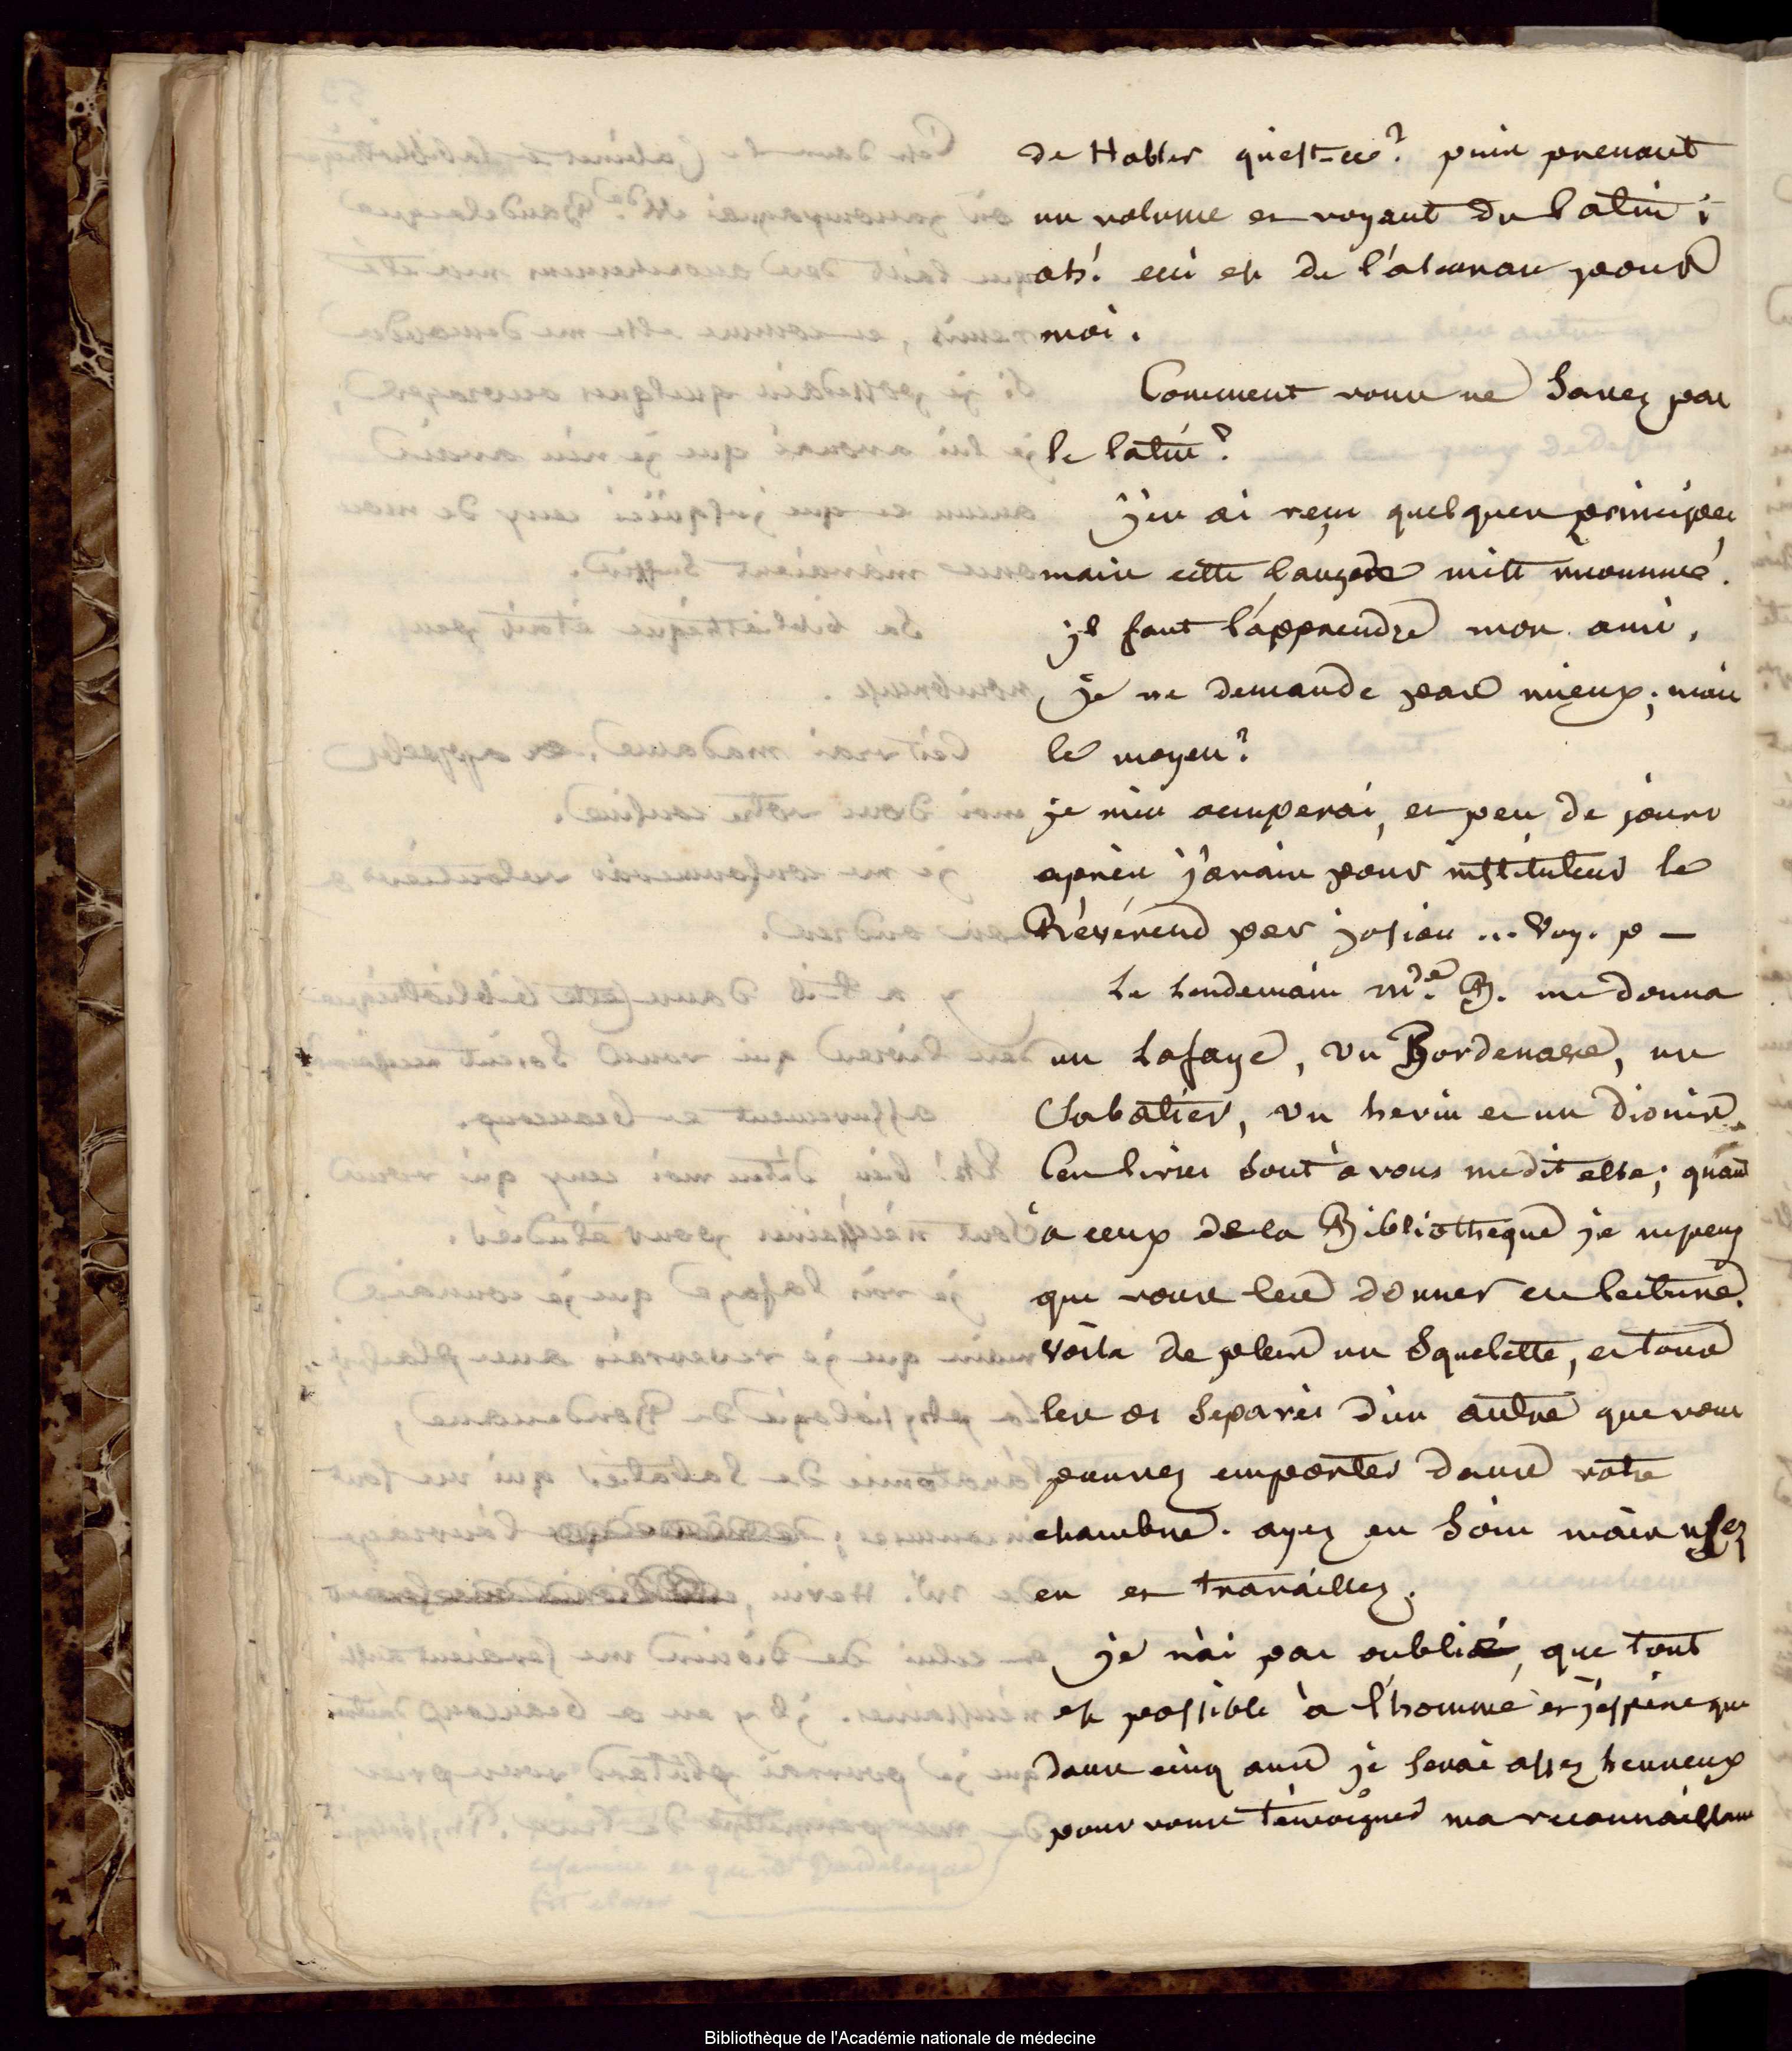 de Haller qu'est-ce? puis prenant
un volume et voyant du latin;
ah! ceci est de l'aleman pour
moi.
Comment vous ne savez pas
le latin?
j'en ai reçu quelques principes,
mais cette langue m'est inconnue.
jl faut l'apprendre mon ami,
je ne demande pas mieux; mais
le moyen?
je m'en ocuperai, et peu de jours
après j'avais pour instituteur le
Révérend per josieu ... Voy. p —
Le lendemain Mde. B. me donna
un Lafaye, un Bordenave, un
Sabatier, un hevin et un dionis.
Ces livres sont à vous me dit elle; quant
à ceux de la Bibliotheque je ne peux
que vous les donner en lecture.
Voila de plus un Squelette, et tous
les os separés d'un autre que vous
pouvez emporter dans votre
chambre. ayez en soin mais usez
en et travaillez.
je n'ai pas oublié, que tout
est possible à l'homme et j'espère que
dans cinq ans je serai assez heureux
pour vous témoigner ma reconnaissance
Bibliothèque de l'Académie nationale de médecine